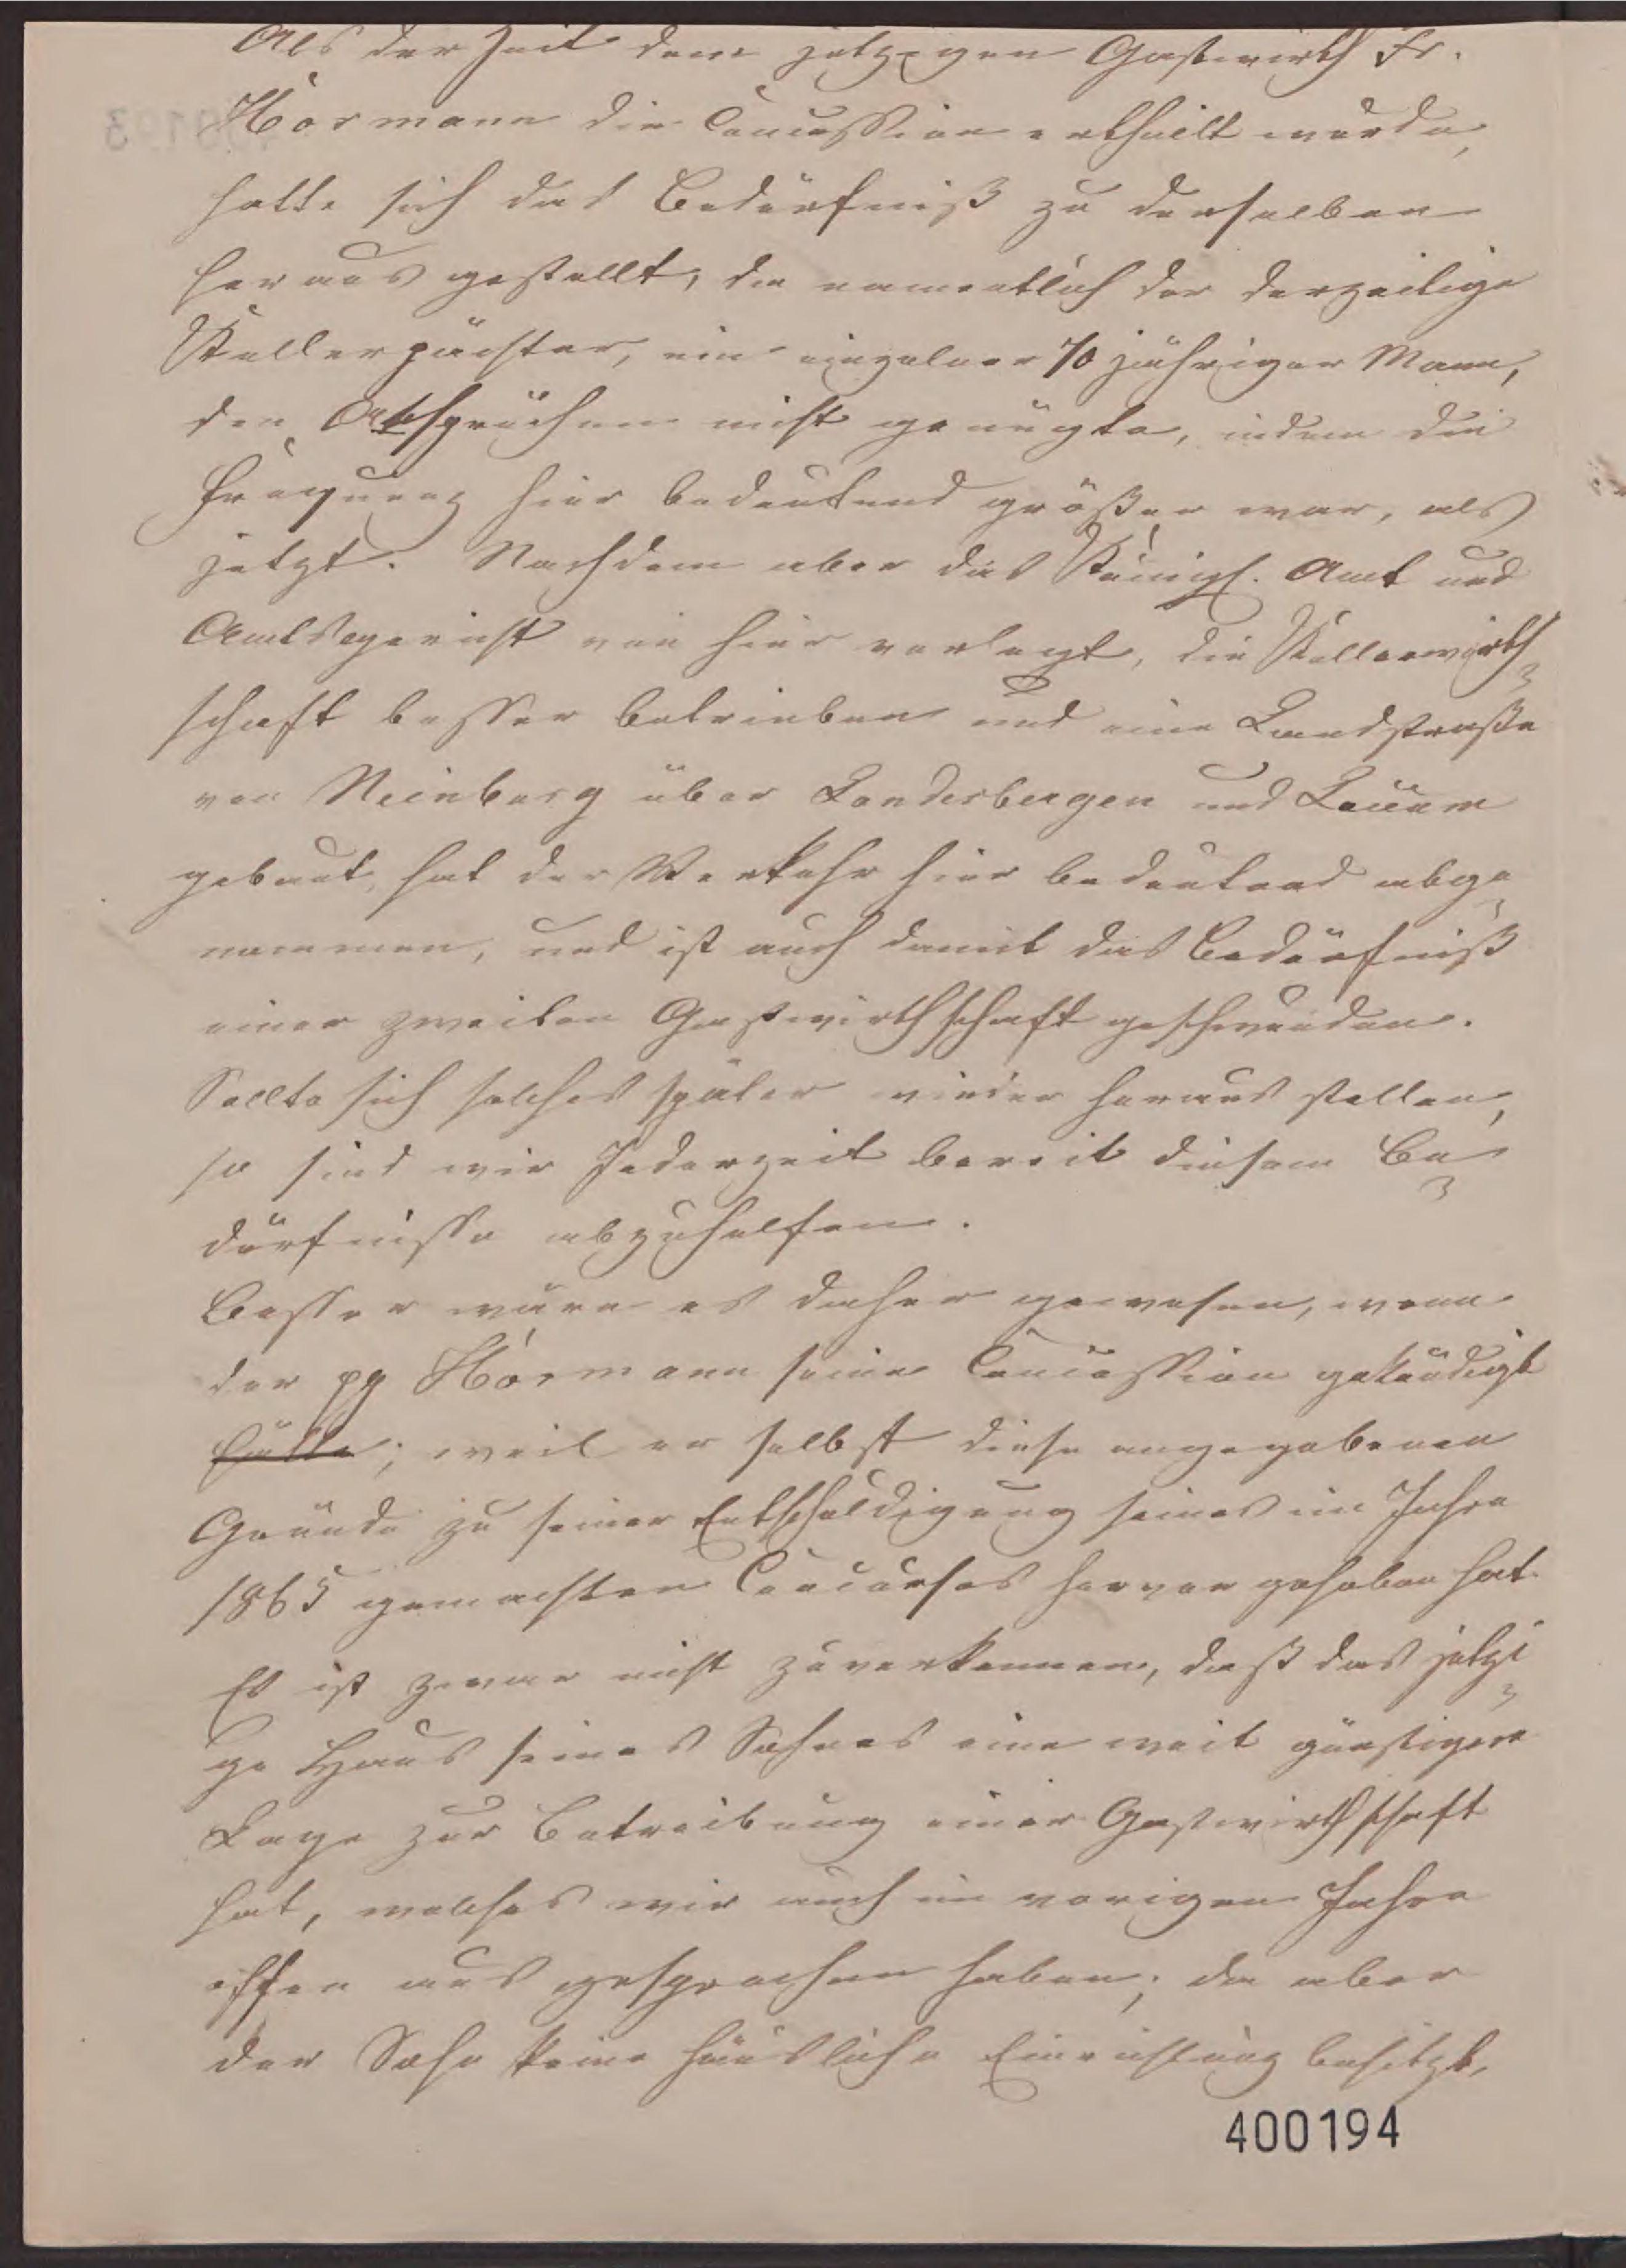 Als der Zeit dem jetzigen Gastwirth Fr.
Hormann die Concession ertheilt wurde,
hatte sich das Bedürfniß zu derselben
heraus gestellt, da namentlich der derzeitige
Kellerpächter, ein einzelner 70 jähriger Mann,
den Absprüchen nicht genügte, indem die
Frequenz hier bedeutend größer war, als
jetzt. Nachdem aber das Königl. Amt und
Amtsgericht von hier verlegt, die Kellerwirth-
schaft besser betrieben und eine Landstraße
von Neinburg über Landesbergen und Loccum
gebaut, hat der Verkehr hier bedeutend abge-
nommen, und ist auch damit das Bedürfniß
einer zweiten Gastwirthschaft geschwunden.
Sollte sich solches später wieder heraus stellen,
so sind wir Jederzeit bereit diesem Be-
dürfnisse abzuhelfen.
Besser wäre es daher gewesen, wenn
der pp Hormann seine Concession gekündigt
hätte; weil er selbst diese angegebenen
Gründe zu seiner Entschuldigung seines im Jahre
1865 gemachten Concurses hervor gehoben hat.
Es ist zwar nicht zuverkennen, daß das jetzi-
ge Haus seines Sohnes eine weit günstigere
Lage zur Betreibung einer Gastwirthschaft
hat, welches wir auch im vorigen Jahre
offen aus gesprochen haben; da aber
der Sohn keine häusliche Einrichtung besitzt,
400194